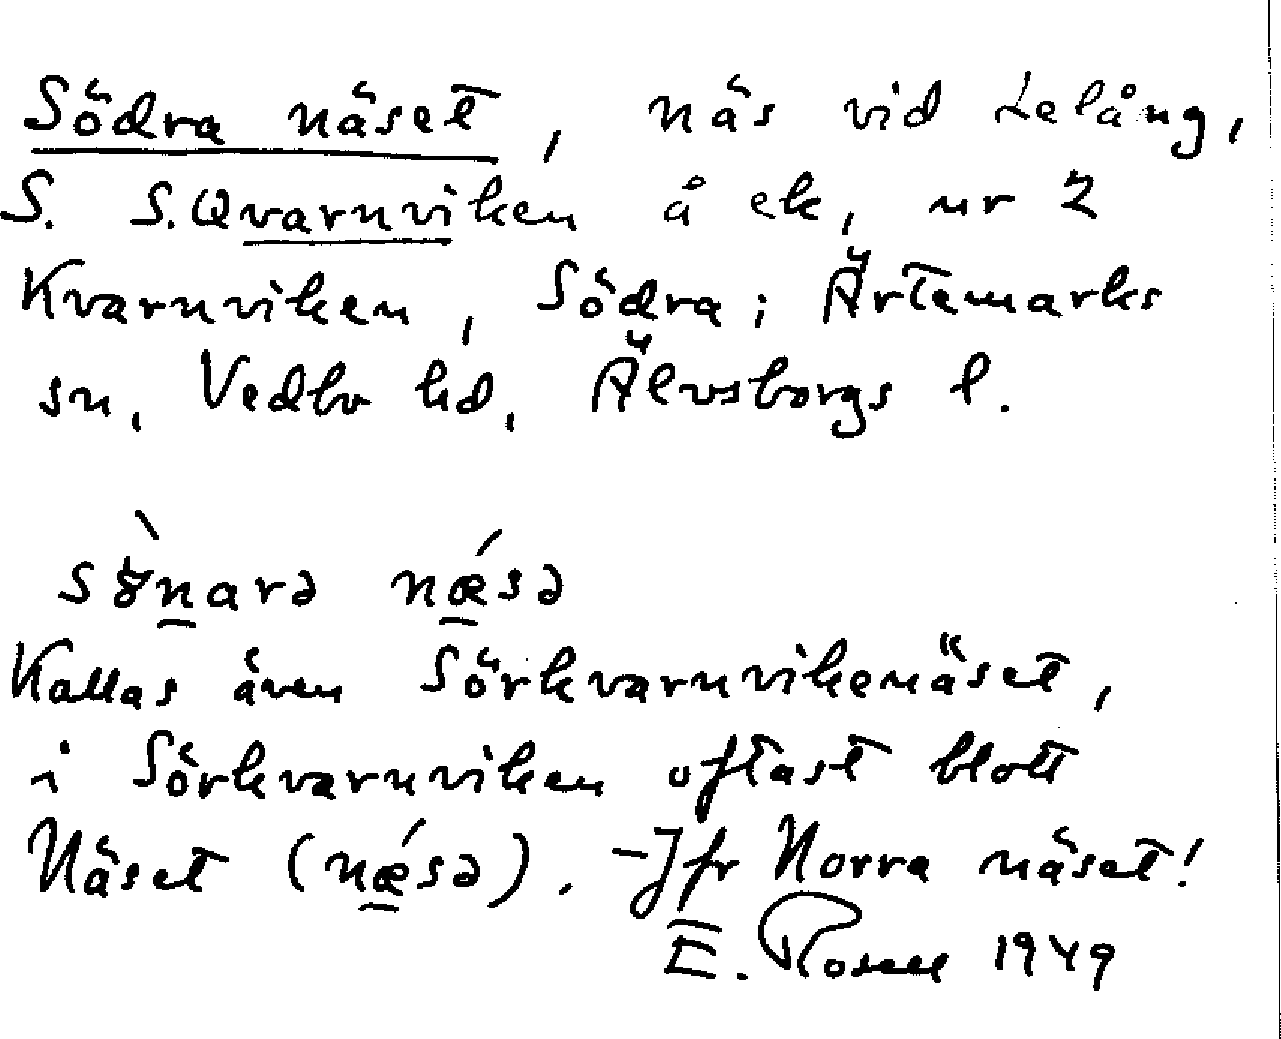 Södra näset, näs vid Lelång,
S. S. Qvarnviken å ek, nr 2
Kvarnviken, Södra; Ärtemarks
sn, Vedbo hd, Älvsborgs l.
næ̀sə
Kallas även Sörkvarnvikenäset,
i Sörkvarnviken oftast blott
Näset (nǽsə). - Jfr Norra näset!
E. Rosell 1949